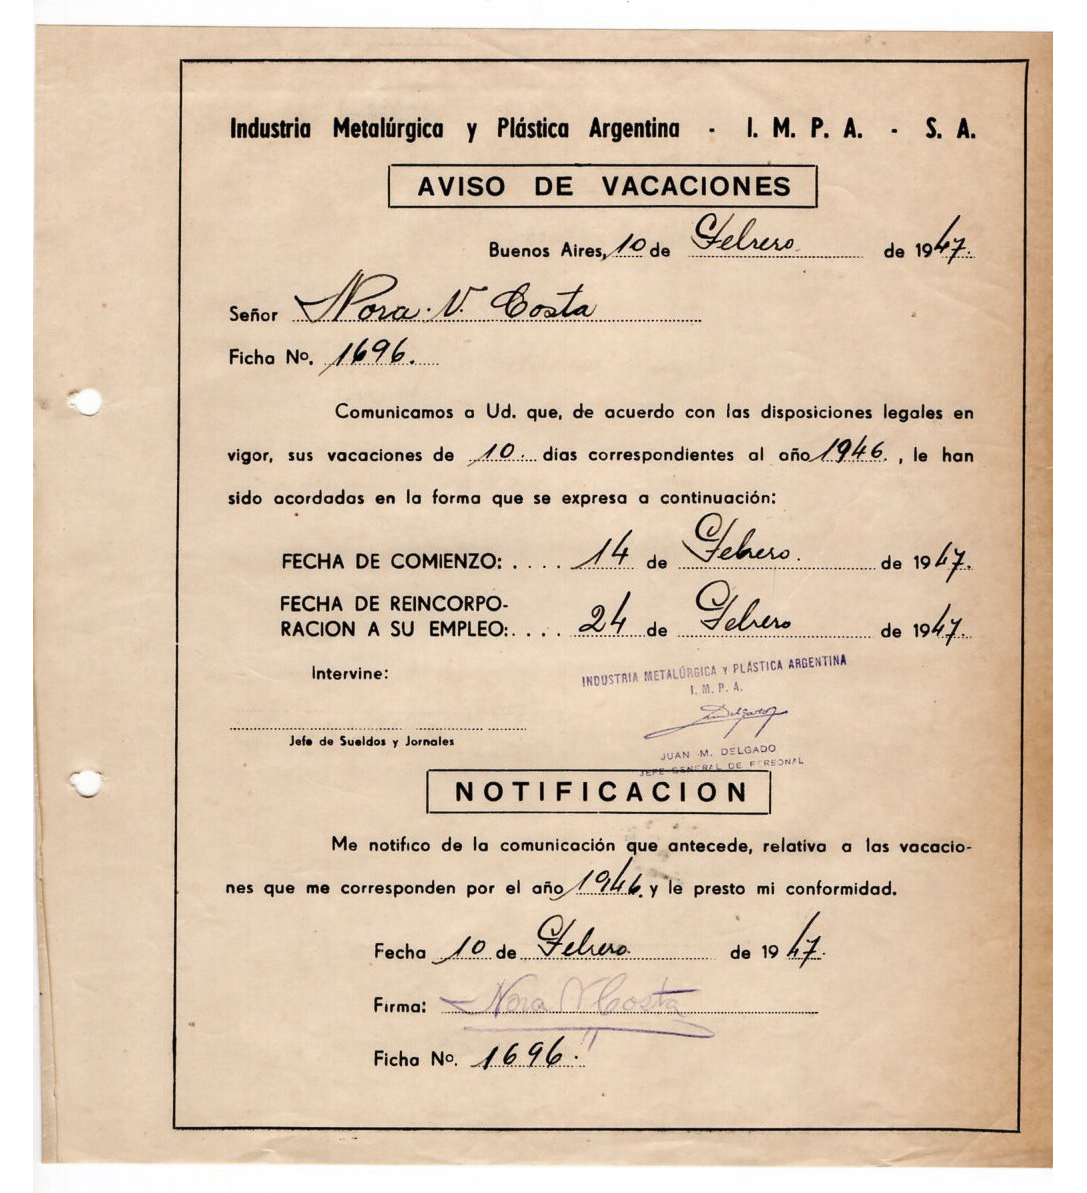 Industria Metalúrgica y Plástica Argentina - I. M. P. A. - S. A.
AVISO DE VACACIONES
Buenos Aires, 10 de Febrero de 1947.
Señor Nora V. Costa
Ficha No. 1696.
Comunicamos a Ud. que, de acuerdo con las disposiciones legales en
vigor, sus vacaciones de 10 días correspondientes al año 1946, le han
sido acordadas en la forma que se expresa a continuación:
FECHA DE COMIENZO: .... 14 de Febrero. de 1947.
FECHA DE REINCORPO-
RACION A SU EMPLEO: .... 24 de Febrero de 1947.
Intervine:
INDUSTRIA METALÚRGICA Y PLÁSTICA ARGENTINA
I. M. P. A.
Jefe de Sueldos y Jornales
JUAN M. DELGADO
JEFE GENERAL DE PERSONAL
NOTIFICACION
Me notifico de la comunicación que antecede, relativa a las vacacio-
nes que me corresponden por el año 1946. y le presto mi conformidad.
Fecha 10 de Febrero. de 1947.
Firma: Nora V Costa
Ficha No. 1696.